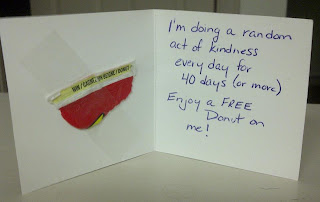 I'm doing a random
act of kindness
every day for
40 days (or more)
Enjoy a FREE
Donut on
me!